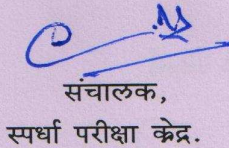 संचालक,
स्पर्धा परीक्षा केंद्र.